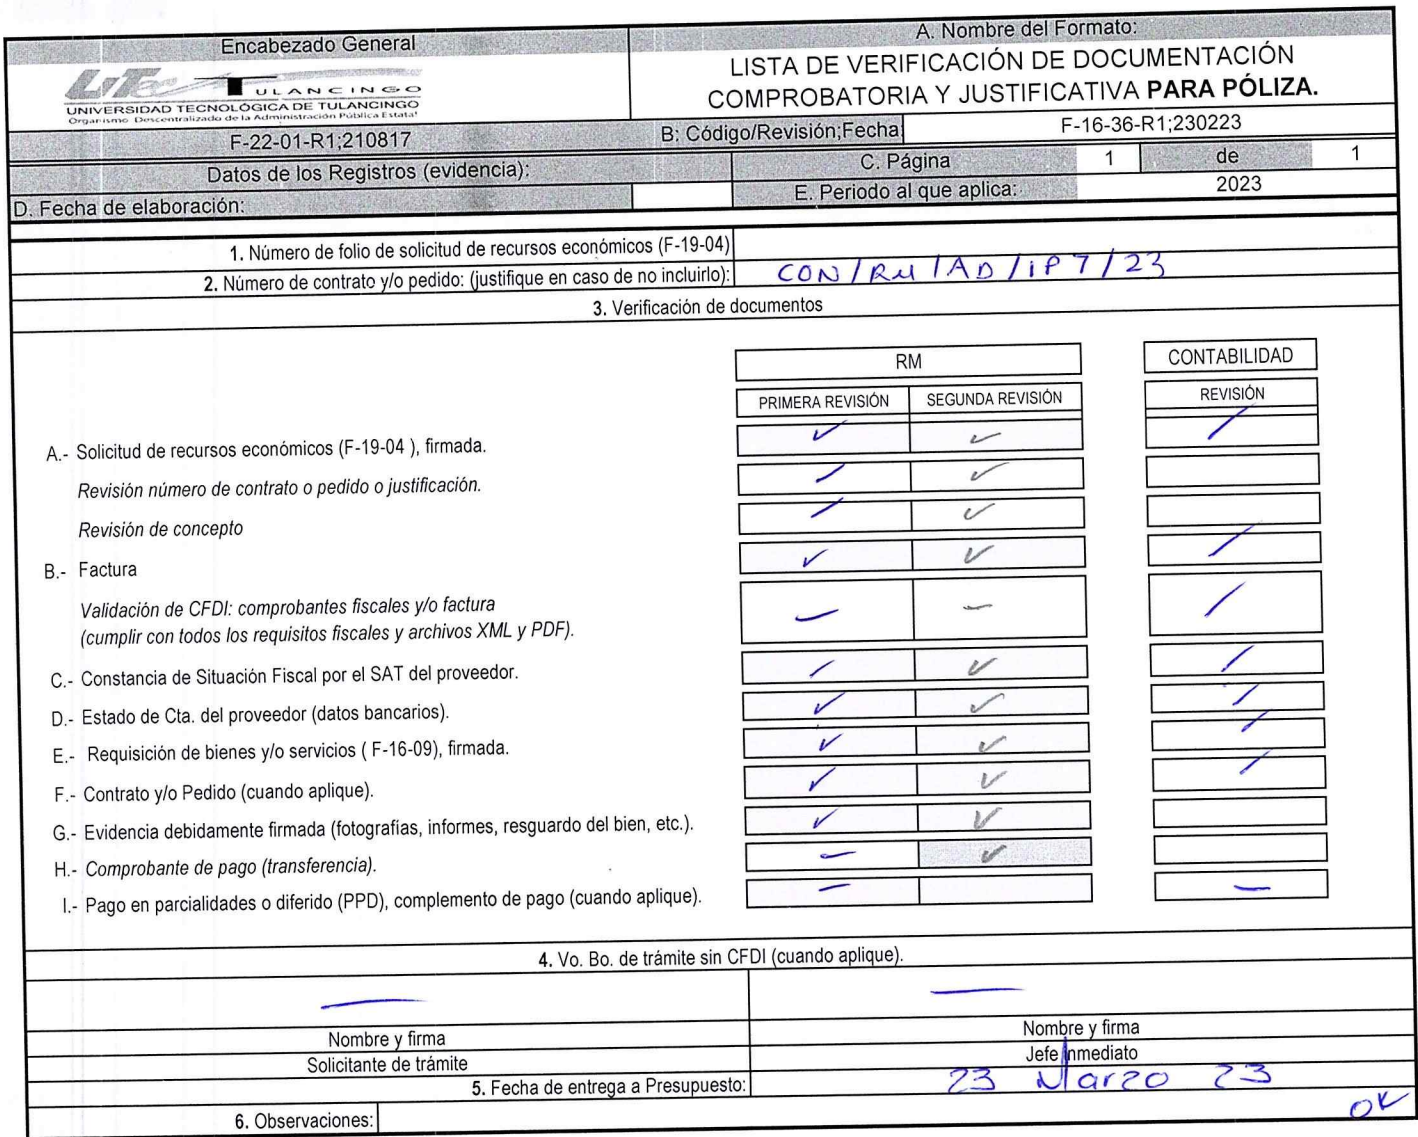 Encabezado General
A. Nombre del Formato:
UTec TULANCINGO
UNIVERSIDAD TECNOLÓGICA DE TULANCINGO
Organismo Descentralizado de la Administración Pública Estatal
LISTA DE VERIFICACIÓN DE DOCUMENTACIÓN
COMPROBATORIA Y JUSTIFICATIVA PARA PÓLIZA.
F-22-01-R1;210817
B: Código/Revisión;Fecha
F-16-36-R1;230223
Datos de los Registros (evidencia):
C. Página 1 de 1
D. Fecha de elaboración:
E. Periodo al que aplica: 2023
1. Número de folio de solicitud de recursos económicos (F-19-04)
2. Número de contrato y/o pedido: (justifique en caso de no incluirlo): CON/RM/AD/iP7/23
3. Verificación de documentos
RM
CONTABILIDAD
PRIMERA REVISIÓN SEGUNDA REVISIÓN REVISIÓN
A.- Solicitud de recursos económicos (F-19-04 ), firmada.
Revisión número de contrato o pedido o justificación.
Revisión de concepto
B.- Factura
Validación de CFDI: comprobantes fiscales y/o factura
(cumplir con todos los requisitos fiscales y archivos XML y PDF).
C.- Constancia de Situación Fiscal por el SAT del proveedor.
D.- Estado de Cta. del proveedor (datos bancarios).
E.- Requisición de bienes y/o servicios ( F-16-09), firmada.
F.- Contrato y/o Pedido (cuando aplique).
G.- Evidencia debidamente firmada (fotografías, informes, resguardo del bien, etc.).
H.- Comprobante de pago (transferencia).
I.- Pago en parcialidades o diferido (PPD), complemento de pago (cuando aplique).
4. Vo. Bo. de trámite sin CFDI (cuando aplique).
Nombre y firma
Nombre y firma
Solicitante de trámite
Jefe inmediato
5. Fecha de entrega a Presupuesto: 23 Marzo 23
6. Observaciones:
OK